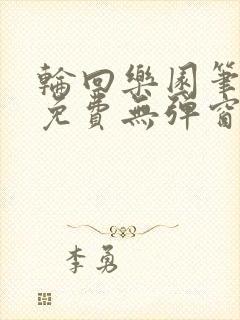 輪回樂園筆
免費無彈窗
李勇